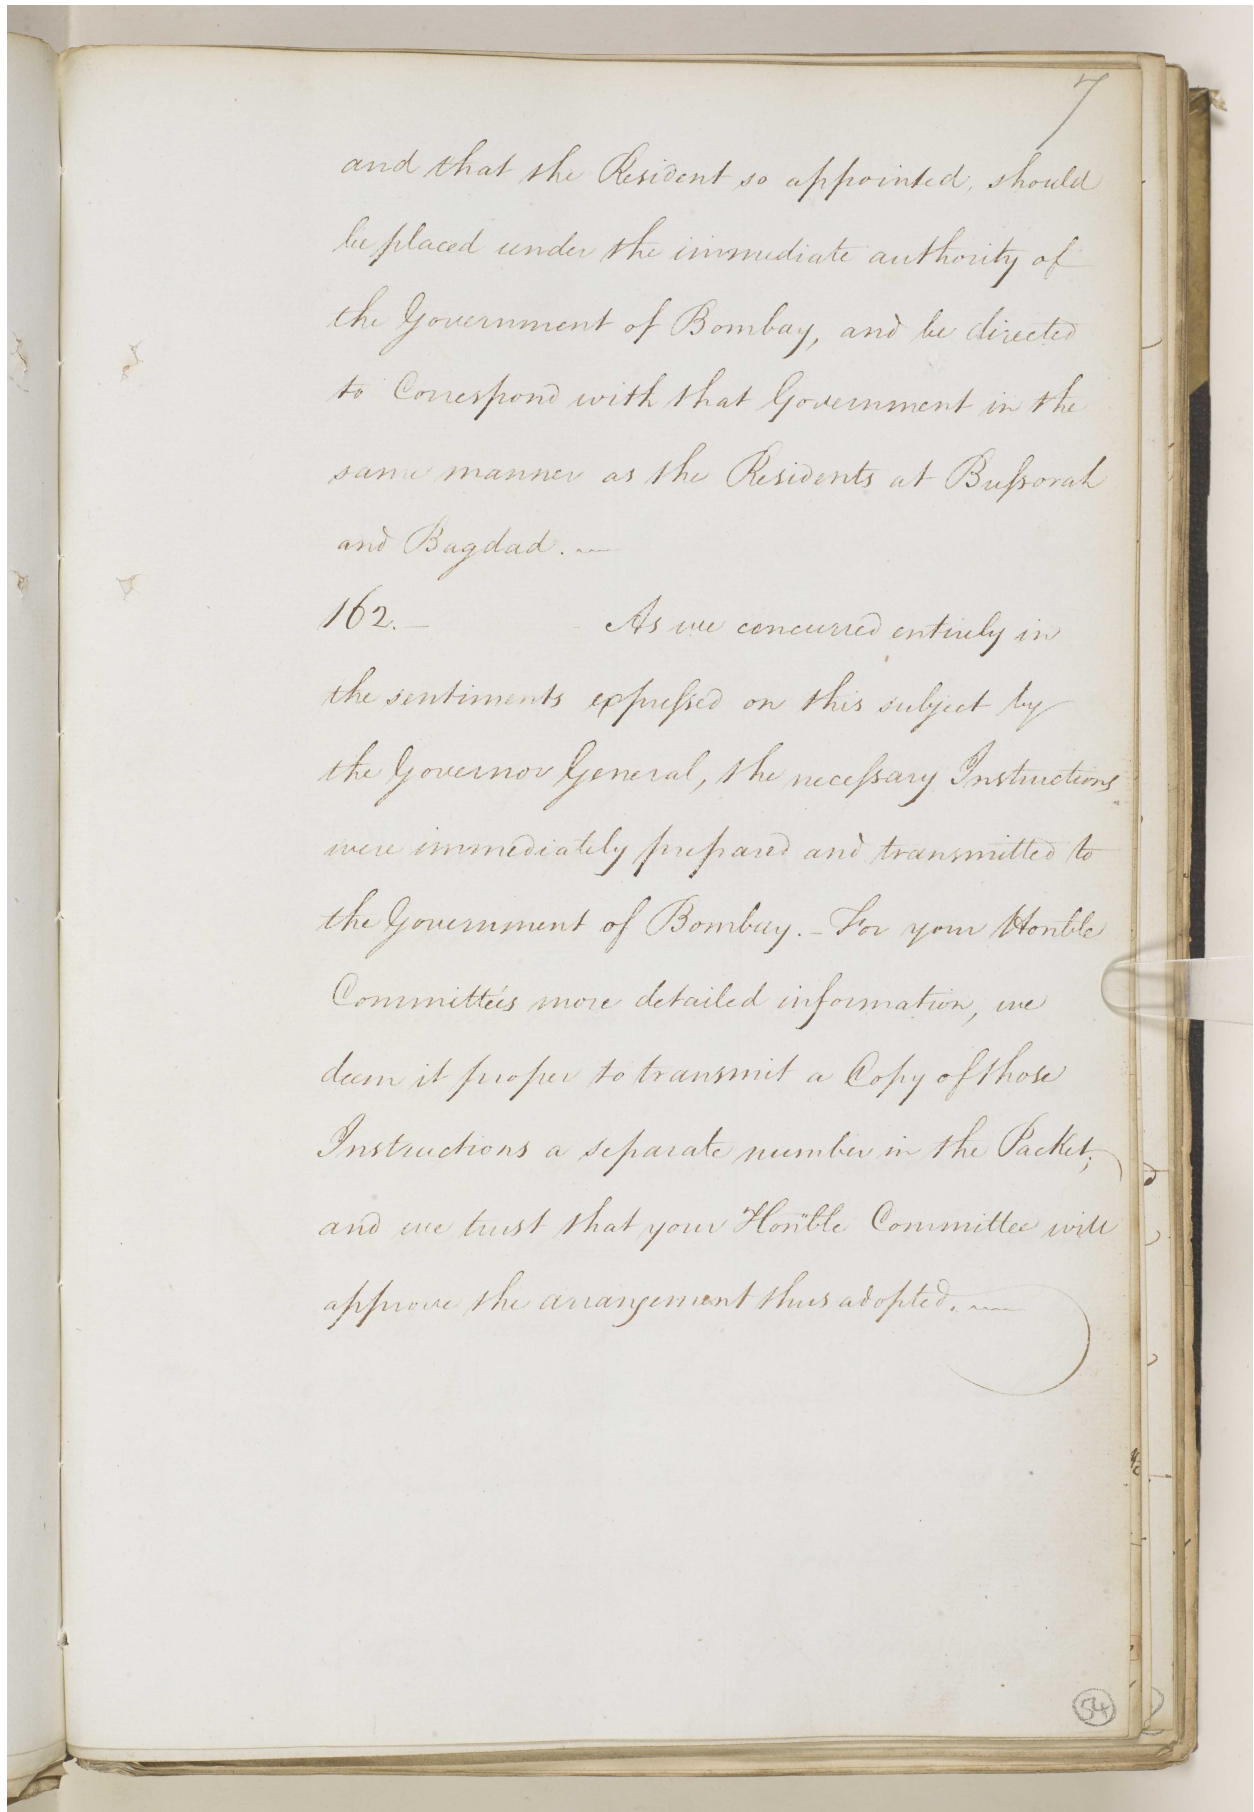 7
and that the Resident so appointed, should
be placed under the immediate authority of
the Government of Bombay, and be directed
to Correspond with that Government in the
same manner as the Residents at Bufsorah
and Bagdad. —
162. — As we concurred entirely in
the sentiments exprefsed on this subject by
the Governor General, the necefsary Instructions
were immediately prepared and transmitted to
the Government of Bombay. – For your Honble
Committee's more detailed information, we
deem it proper to transmit a Copy of those
Instructions a separate number in the Packet;
and we trust that your Honble Committee will
approve the arrangement thus adopted. —
54